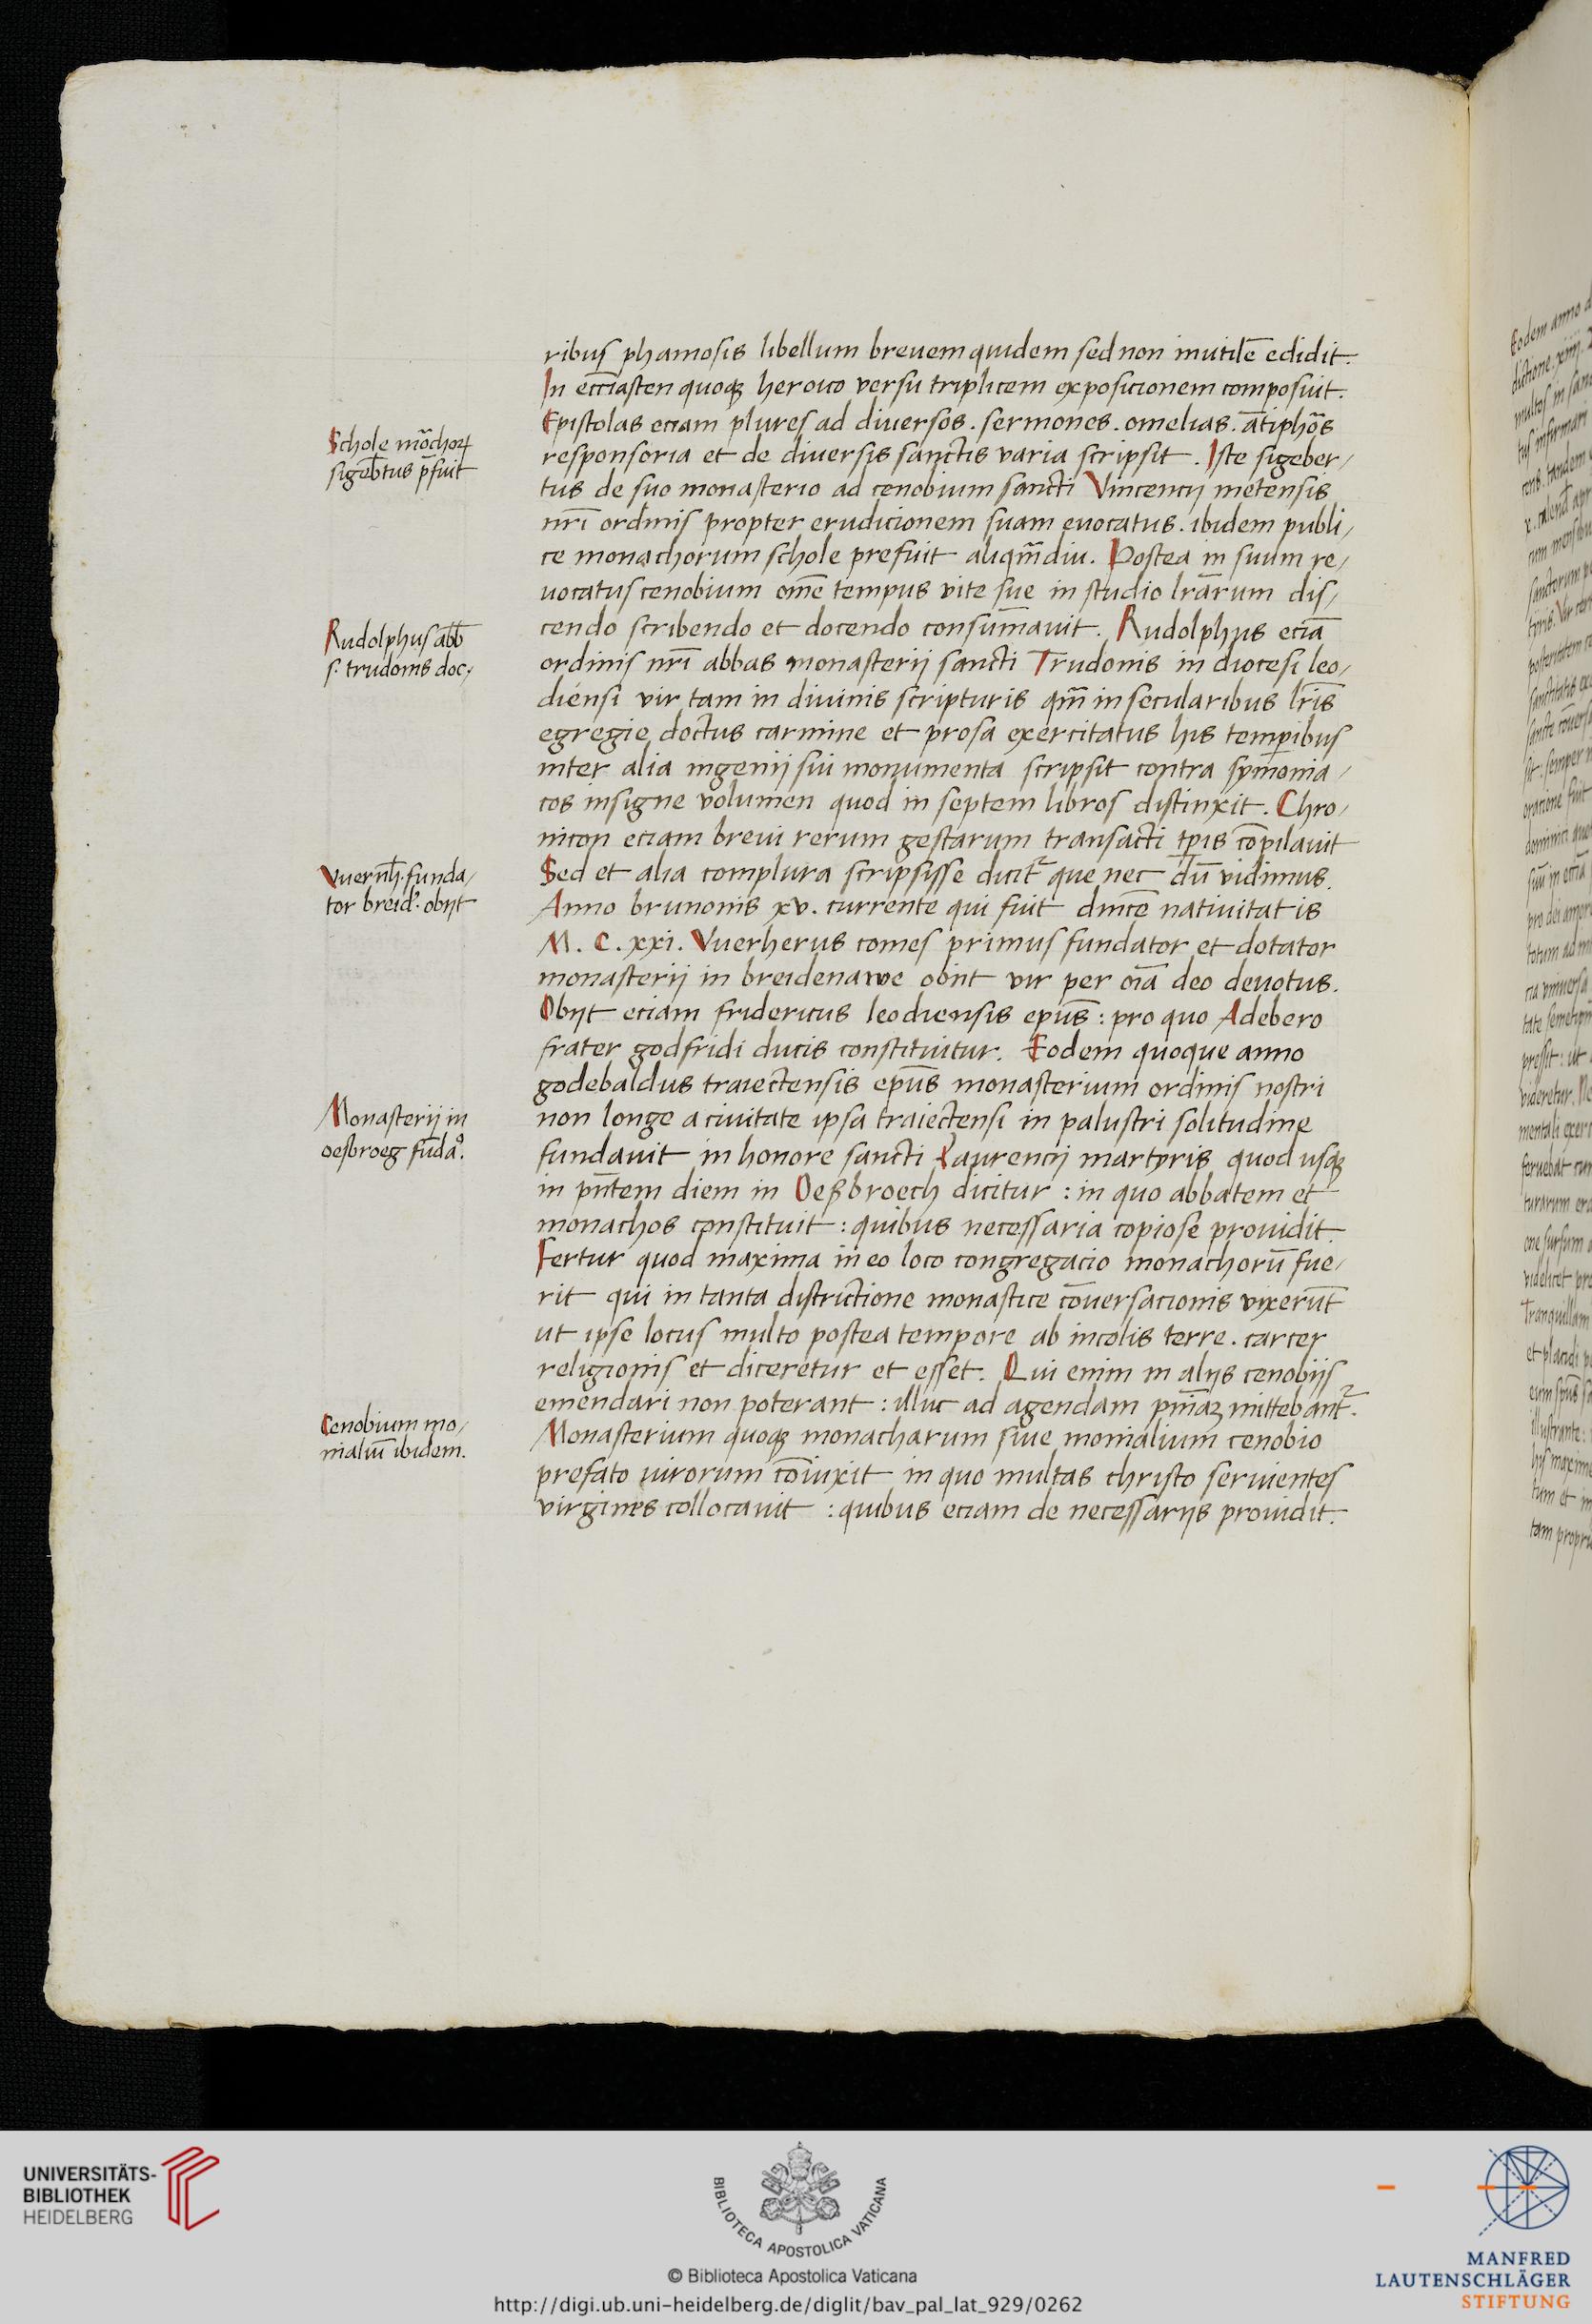 ribus phamosis libellum breuem quidem sed non inutilē edidit.
In ecc̄iasten quoqꝫ heroico versu triplicem exposicionem composuit.
Epistolas eciam plures ad diuersos . sermones . omelias . ātiphōs
Schole mōchoꝝ
sigeb̄tus p̄fuit
responsoria et de diuersis sanctis varia scripsit . Iste sigeber/
tus de suo monasterio ad cenobium sancti Vincencij metensis
nr̄i ordinis propter erudicionem suam euocatus . ibidem publi/
ce monachorum schole prefuit aliqm̄diu. Postea in suum re/
uocatus cenobium om̄e tempus vite sue in studio lr̄arum dis/
Rudolphus abb̄
s. trudonis doc.
cendo scribendo et docendo consum̄auit. Rudolphus eciā
ordinis nr̄i abbas monasterij sancti Trudonis in diocesi leo/
diensi vir tam in diuinis scripturis qm̄ in secularibus lr̄is
egregie doctus carmine et prosa exercitatus his temp̲ibus
inter alia ingenij sui monumenta scripsit contra symonia/
cos insigne volumen quod in septem libros distinxit. Chro/
nicon eciam breui rerum gestarum transacti tp̄is cōpilauit
Vuernh̄. funda/
tor breid. obijt
Sed et alia complura scripsisse dicit̃ que nec dū vidimus.
Anno brunonis xv. currente qui fuit dn̄ice nativitatis
M. C. xxi. Vuerherus comes primus fundator et dotator
monasterij in breidenawe obijt vir per oīa deo deuotus.
Obijt eciam fridericus leodiensis ep̄us : pro quo Adebero
frater godfridi ducis constituitur. Eodem quoque anno
godebaldus traiectensis ep̄us monasterium ordinis nostri
Monasterij in
oesbroeg fūdaͦ.
non longe a ciuitate ipsa traiectensi in palustri solitudine
fundauit in honore sancti Laurencij martyris quod usqꝫ
in pn̄tem diem in Oeßbroech dicitur : in quo abbatem et
monachos constituit : quibus necessaria copiose prouidit.
Fertur quod maxima in eo loco congregacio monachorū fue/
rit qui in tanta districtione monastice cōuersacionis vixerūt
ut ipse locus multo postea tempore ab incolis terre . carcer
religionis et diceretur et esset. Qui enim in alijs cenobijs
emendari non poterant : illuc ad agendam pn̄iaꝫ mittebant̃.
Cenobium mo/
nialiū ibidem.
Monasterium quoqꝫ monacharum siue monialium cenobio
prefato uirorum cōiuxit in quo multas christo seruientes
virgines collocauit : quibus eciam de necessarijs prouidit.
UNIVERSITÄTS-
BIBLIOTHEK
HEIDELBERG
BIBLIOTECA APOSTOLICA VATICANA
© Biblioteca Apostolica Vaticana
http://digi.ub.uni-heidelberg.de/diglit/bav_pal_lat_929/0262
MANFRED
LAUTENSCHLÄGER
STIFTUNG